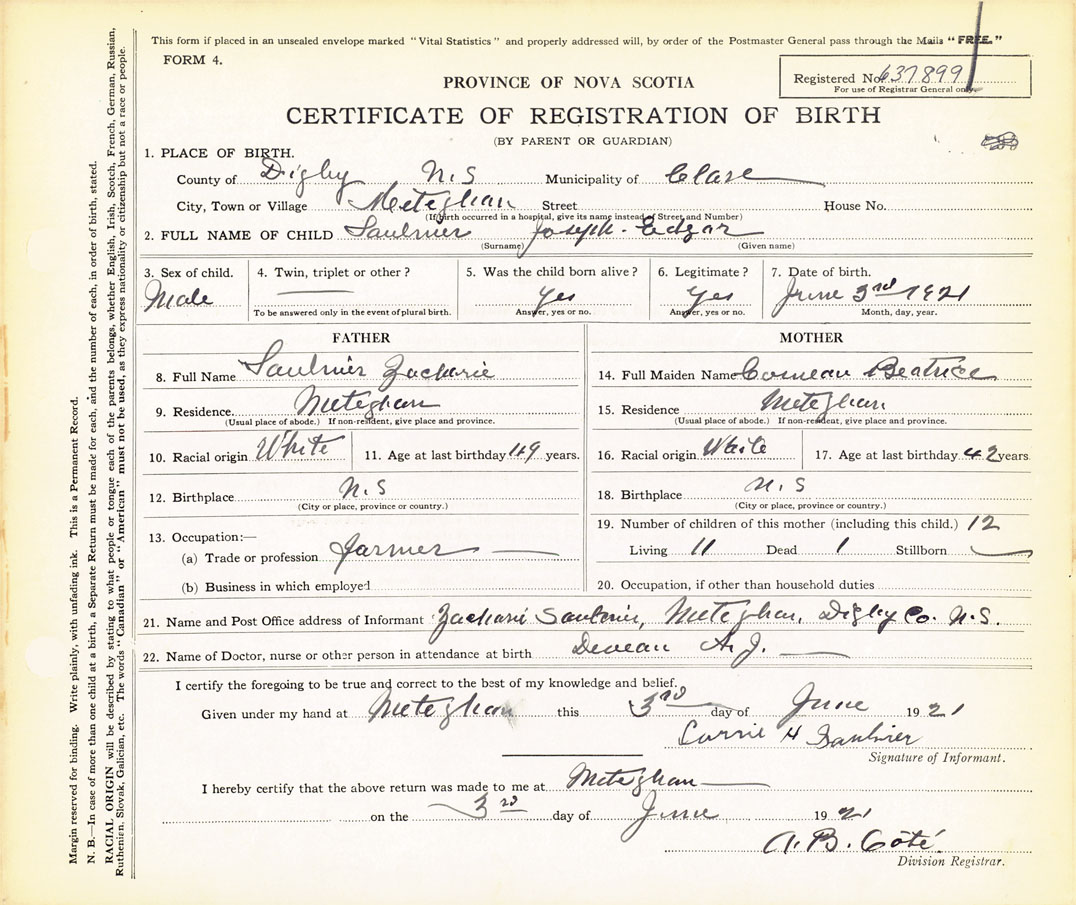 This form if placed in an unsealed envelope marked "Vital Statistics" and properly addressed will, by order of the Postmaster General pass through the Mails "FREE."
FORM 4.
Registered No. 637899
For use of Registrar General only.
PROVINCE OF NOVA SCOTIA
CERTIFICATE OF REGISTRATION OF BIRTH
(BY PARENT OR GUARDIAN)
1. PLACE OF BIRTH.
County of Digby N.S Municipality of Clare
City, Town or Village Meteghan Street House No.
(If birth occurred in a hospital, give its name instead of Street and Number)
2. FULL NAME OF CHILD Saulnier Joseph-Edgar
(Surname) (Given name)
3. Sex of child. 4. Twin, triplet or other? 5. Was the child born alive? 6. Legitimate? 7. Date of birth.
Male Yes Yes June 3rd 1921
To be answered only in the event of plural birth. Answer, yes or no. Answer, yes or no. Month, day, year.
FATHER
8. Full Name Saulnier Zacharie
9. Residence. Meteghan
(Usual place of abode.) If non-resident, give place and province.
10. Racial origin White 11. Age at last birthday 49 years.
12. Birthplace N.S
(City or place, province or country.)
13. Occupation:—
(a) Trade or profession farmer
(b) Business in which employed
MOTHER
14. Full Maiden Name Comeau Beatrice
15. Residence Meteghan
(Usual place of abode.) If non-resident, give place and province.
16. Racial origin Waite 17. Age at last birthday 42 years.
18. Birthplace N.S
(City or place, province or country.)
19. Number of children of this mother (including this child.) 12
Living 11 Dead 1 Stillborn
20. Occupation, if other than household duties
21. Name and Post Office address of Informant Zacharie Saulnier, Meteghan, Digby Co. N.S.
22. Name of Doctor, nurse or other person in attendance at birth Deveau A.J.
I certify the foregoing to be true and correct to the best of my knowledge and belief.
Given under my hand at Meteghan this 3rd day of June 1921
H Saulnier
Signature of Informant.
I hereby certify that the above return was made to me at Meteghan
on the 3rd day of June 1921
A.B. Coté
Division Registrar.
Margin reserved for binding. Write plainly, with unfading ink. This is a Permanent Record.
N. B.—In case of more than one child at a birth, a Separate Return must be made for each, and the number of each, in order of birth, stated.
RACIAL ORIGIN will be described by stating to what people or tongue each of the parents belongs, whether English, Irish, Scotch, French, German, Russian,
Ruthenien, Slovak, Galician, etc. The words "Canadian" or "American" must not be used, as they express nationality or citizenship but not a race or people.